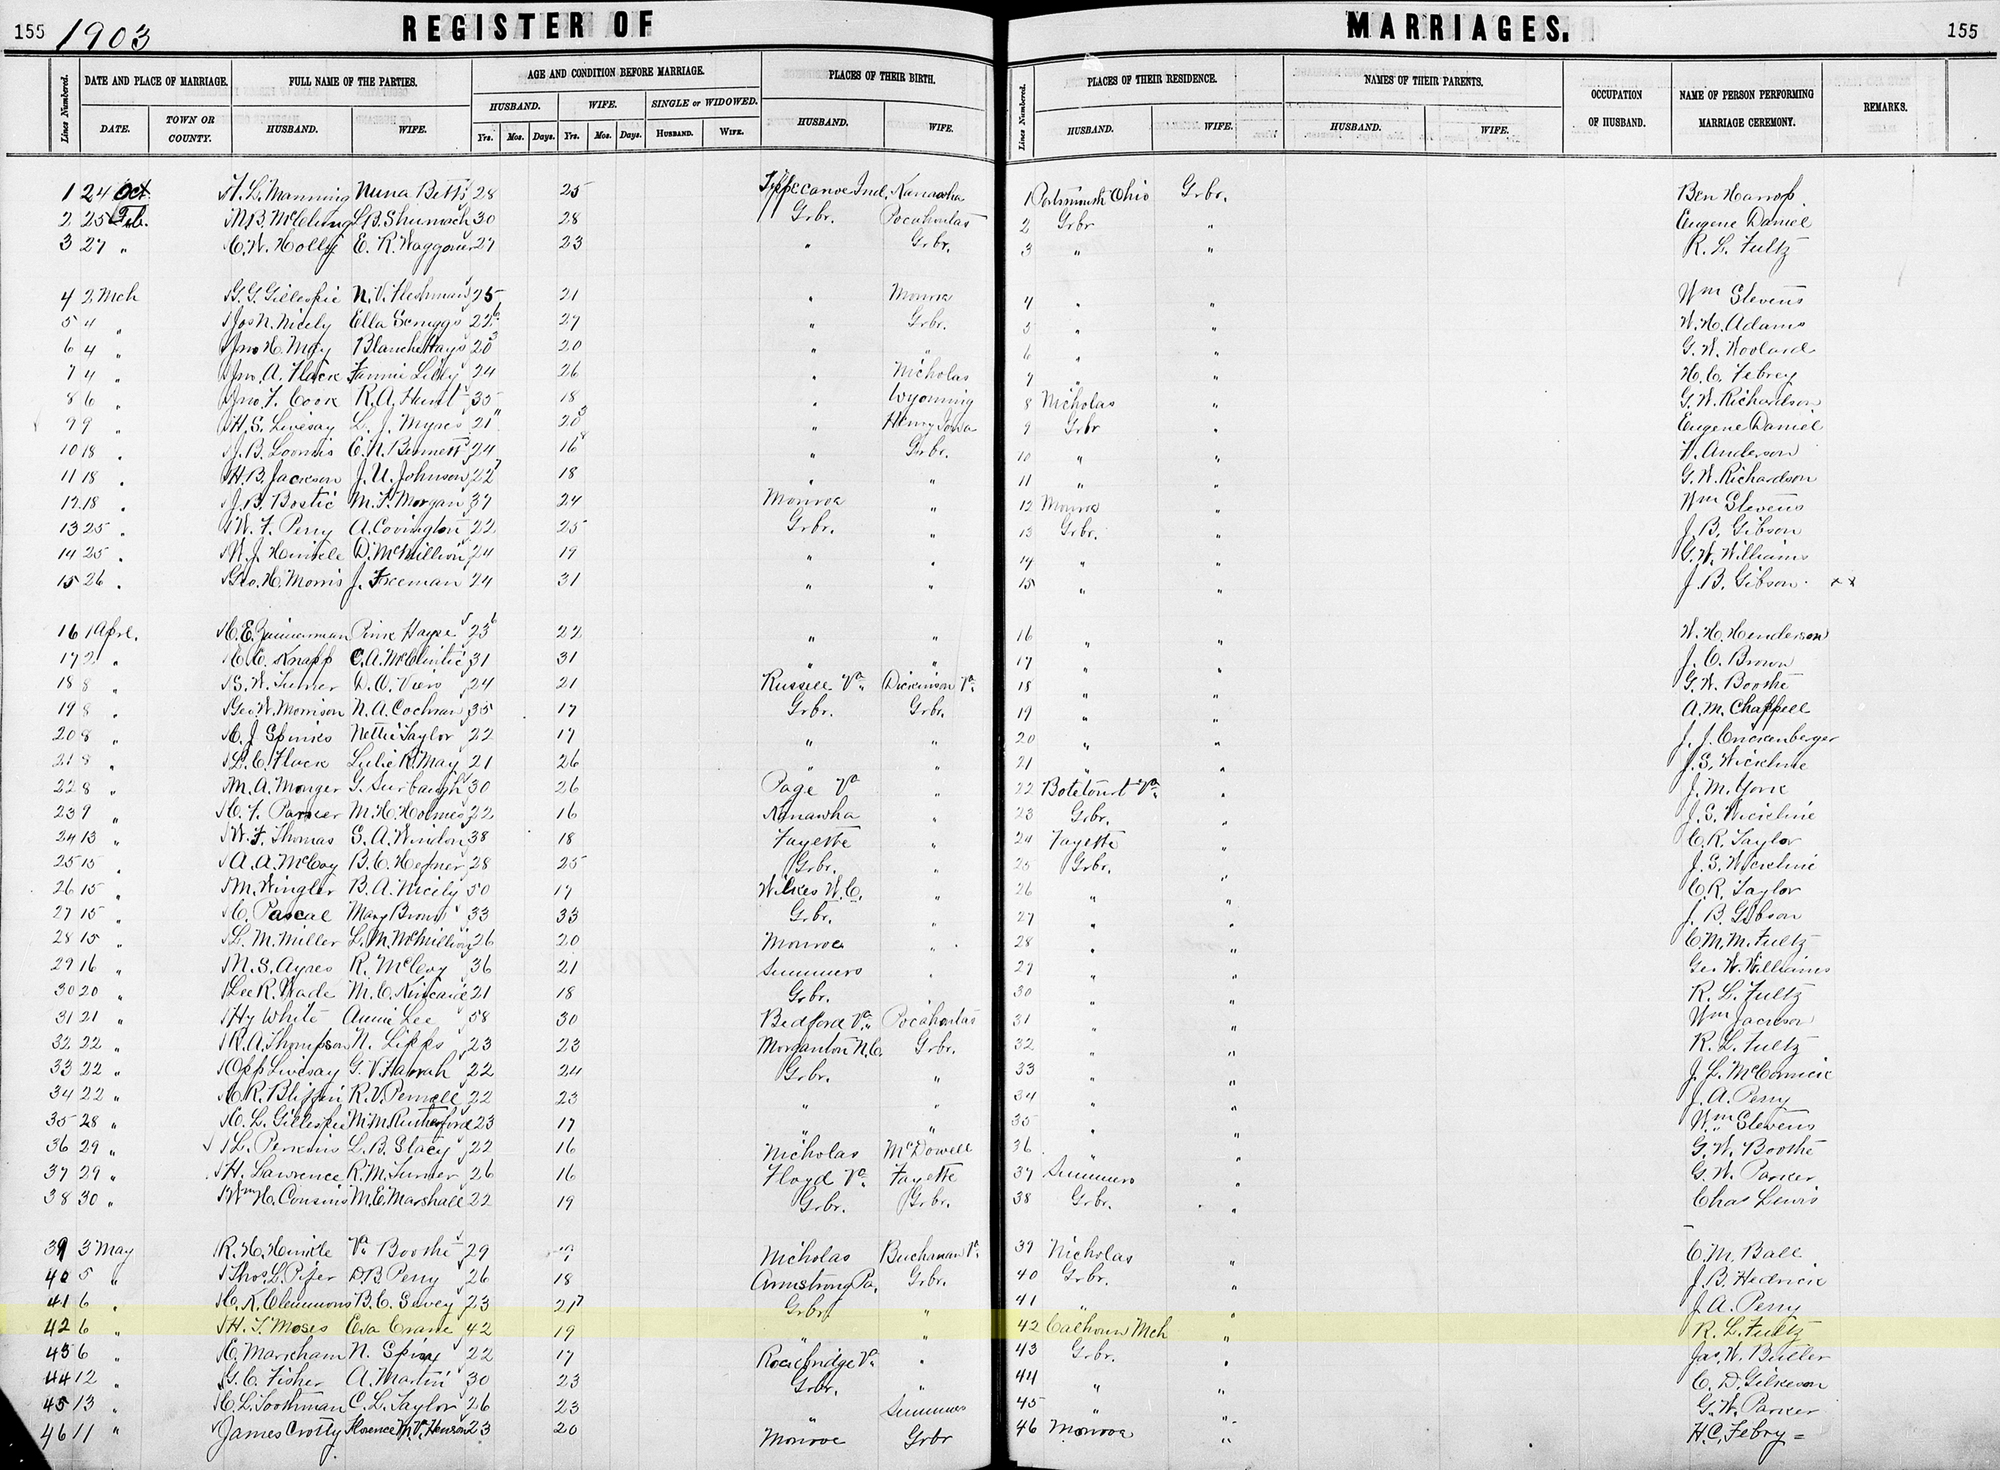 155 1903 REGISTER OF MARRIAGES. 155
Lines Numbered. DATE AND PLACE OF MARRIAGE. FULL NAME OF THE PARTIES. AGE AND CONDITION BEFORE MARRIAGE. PLACES OF THEIR BIRTH. Lines Numbered. PLACES OF THEIR RESIDENCE. NAMES OF THEIR PARENTS. OCCUPATION OF HUSBAND. NAME OF PERSON PERFORMING MARRIAGE CEREMONY. REMARKS.
DATE. TOWN OR COUNTY. HUSBAND. WIFE. HUSBAND. WIFE. SINGLE or WIDOWED. HUSBAND. WIFE. HUSBAND. WIFE. HUSBAND. WIFE.
Yrs. Mos. Days. Yrs. Mos. Days. HUSBAND. WIFE.
1 24 Oct. Manning Nuna Betts 28 25 Tippecanoe Ind. Kanawha 1 Portsmouth Ohio Grbr. Ben Harrop
2 25 Feb. M.B. McClung L.B. Shumach 30 28 Grbr. Pocahontas 2 Grbr " Eugene Daniel
3 27 " C.W. Holly E. R. Waggoner 27 23 " Grbr. 3 " " R. L. Fultz
4 2 Mch G.G. Gillespie N.V. Fleshman 25 21 " Monroe 4 " " Wm Stevens
5 4 " Jos N. Nicely Ella Scruggs 22 27 " Grbr. 5 " " W.H. Adams
6 4 " Jno H. May Blanche Hays 20 20 " " 6 " " G.W. Woolard
7 4 " Jno. A. Flack Fannie Lilly 24 26 " Nicholas 7 " " H.C. Febrey
8 6 " Jno. F. Cook R.A. Hunt 35 18 " Wyoming 8 Nicholas " G.W. Richardson
9 9 " H.S. Livesay L. J. Myres 21 20 " Henry Iowa 9 Grbr " Eugene Daniel
10 18 " J.B. Loomis E.N. Bennett 24 16 " Grbr. 10 " " Anderson
11 18 " H.B. Jackson J.U. Johnson 22 18 " " 11 " " G.W. Richardson
12 18 " J.B. Bostic M.F. Morgan 37 24 Monroe " 12 Monroe " Wm Stevens
13 25 " W.F. Perry A. Covington 22 25 Grbr. " 13 Grbr. " J.B. Gibson
14 25 " W.J. Hinkle D. McMillion 24 19 " " 14 " " G.W. Williams
15 26 " Geo. H. Morris J. Freeman 24 31 " " 15 " " J.B. Gibson xx
16 1 Apl. C.E. Zimmerman Pink Hayse 23 22 " " 16 " " W.H. Henderson
17 2 " Knapp C.A. McClintic 31 31 " " 17 " " J.C. Brown
18 8 " S.W. Turner D.O. Viers 24 21 Russell Va. Dickinson Va. 18 " " G.W. Boothe
19 8 " Geo. W. Morrison N.A. Cochran 35 17 Grbr. Grbr. 19 " " A.M. Chappell
20 8 " C.J. Spinks Nettie Taylor 22 17 " " 20 " " J.J. Crickenberger
21 8 " L.C. Flack Lulie R. May 21 26 " " 21 " " J.S. Wickline
22 8 " M.A. Monger G. Surbaugh 30 26 Page Va " 22 Botetourt Va. " J.M. York
23 9 " C.F. Parker M.H. Holmes 22 16 Kanawha " 23 Grbr. " J.S. Wickline
24 13 " W.F. Thomas S.A. Windon 38 18 Fayette " 24 Fayette " C.R. Taylor
25 15 " A.A. McCoy B.C. Hefner 28 25 Grbr. " 25 Grbr. " J.S. Wickline
26 15 " M. Wingler B.A. Nicily 50 17 Wilkes N.C. " 26 " " C.R. Taylor
27 15 " C. Pascal Mary Brown 33 33 Grbr. " 27 " " J.B. Gibson
28 15 " L.M. Miller L.M. McMillion 26 20 Monroe " 28 " " C.M.M. Fultz
29 16 " M.S. Ayres R. McCoy 36 21 Summers " 29 " " Geo W. Williams
30 20 " Lee R. Wade M.C. Kincaid 21 18 Grbr. " 30 " " R.L. Fultz
31 21 " Hy White Annie Lee 58 30 Bedford Va. Pocahontas 31 " " Wm Jackson
32 22 " R.A. Thompson N. Lipps 23 23 Morganton N.C. Grbr. 32 " " R.L. Fultz
33 22 " Opp Livesay G.V. Hannah 22 24 Grbr. " 33 " " J.L. McCormick
34 22 " R.V. Pennell 22 23 " " 34 " " J.A. Perry
35 28 " C.L. Gillespie M.M. Rutherford 23 17 " " 35 " " Wm Stevens
36 29 " L. Perkins L.B. Stacy 22 16 Nicholas McDowell 36 " " G.W. Boothe
37 29 " H. Lawrence R.M. Turner 26 16 Floyd Va. Fayette 37 Summers " G.W. Parker
38 30 " Wm H. Cousins M.E. Marshall 22 19 Grbr. Grbr. 38 Grbr. " Chas Lewis
39 3 May R.H. Hinkle Va. Boothe 29 Nicholas Buchanan Va. 39 Nicholas " C.M. Ball
40 5 " Thos. L. Pifer D.B. Perry 26 18 Armstrong Pa. Grbr. 40 Grbr. " J.B. Hedrick
41 6 " C.K. Clemmons B.C. Sivey 23 21 Grbr. " 41 " " J.A. Perry
42 6 " H.T. Moses Eva Crane 42 19 " " 42 Calhoun Mch " R.L. Fultz
43 6 " C. Markham N. Spinx 22 17 Rockbridge Va. " 43 Grbr. " Jas. W. Butler
44 12 " G.C. Fisher A. Martin 30 23 Grbr. " 44 " " C.D. Gilkeson
45 13 " C.L. Toothman C.L. Taylor 26 23 " Summers 45 " " G.W. Parker
46 11 " James Crotty Florence M.V. Henson 23 20 Monroe Grbr 46 Monroe " H.C. Febry